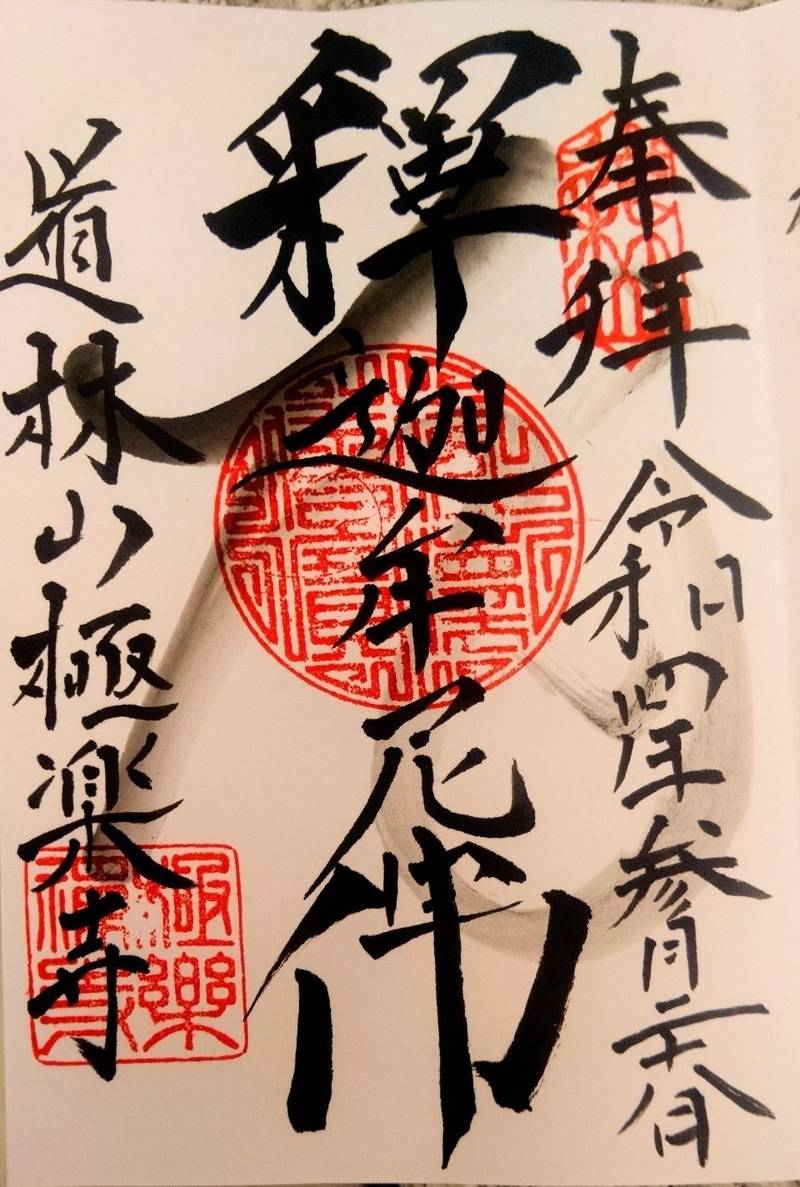 奉拝
令和四年参月二十八日
釋迦牟尼佛
道林山極楽寺
極樂
禪寺